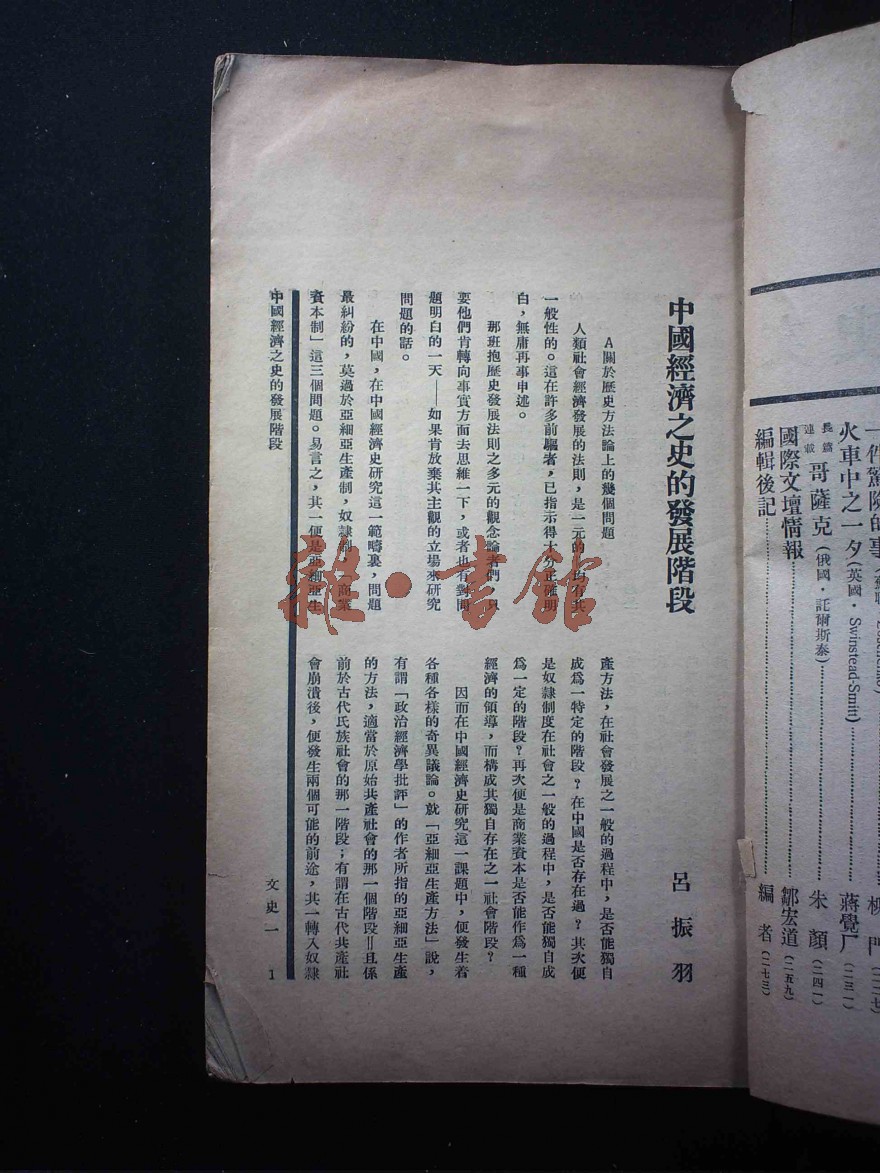 中國經濟之史的發展階段
呂振羽
A關於歷史方法論上的幾個問題
人類社會經濟發展的法則，是一元的，均有其
一般性的。這在許多前驅者，已指示得十分正確明
白，無庸再事申述。
那班抱歷史發展法則之多元的觀念論者們，只
要他們肯轉向事實方面去思維一下，或者也有對問
題明白的一天——如果肯放棄其主觀的立場來研究
問題的話。
在中國，在中國經濟史研究這一範疇裏，問題
最糾紛的，莫過於亞細亞生產制，奴隸制，「商業
資本制」這三個問題。易言之，其一便是亞細亞生
產方法，在社會發展之一般的過程中，是否能獨自
成為一特定的階段？在中國是否存在過？其次便
是奴隸制度在社會之一般的過程中，是否能獨自成
為一定的階段？再次便是商業資本是否能作為一種
經濟的領導，而構成其獨自存在之一社會階段？
因而在中國經濟史研究這一課題中，便發生着
各種各樣的奇異議論。就「亞細亞生產方法」說，
有謂「政治經濟學批評」的作者所指的亞細亞生產
的方法，適當於原始共產社會的那一個階段＝且係
前於古代氏族社會的那一階段；有謂在古代共產社
會崩潰後，便發生兩個可能的前途，其一轉入奴隸
中國經濟之史的發展階段
文史一
1
雜·書館
一件驚險的事
柳門（二二七）
火車中之一夕（英國·Swinstead-Smitt）
蔣覺厂（二三一）
長篇連載 哥薩克（俄國·託爾斯泰）
朱顏（二四一）
國際文壇情報
鄒宏道（二五九）
編輯後記
編者（二七三）